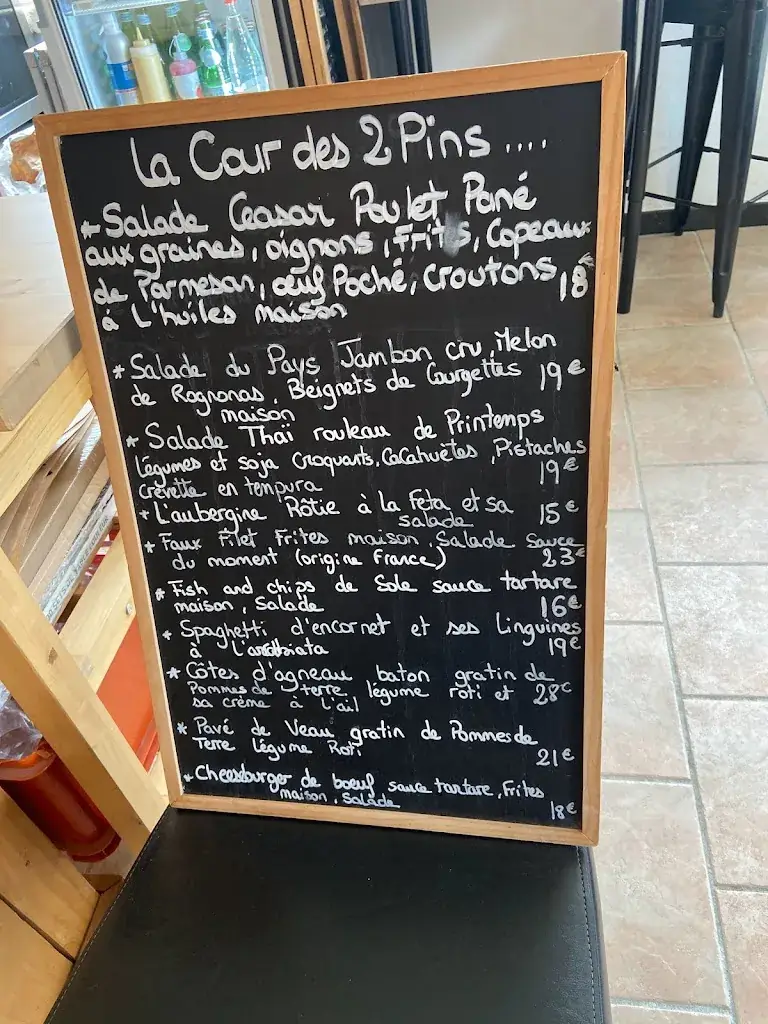 La Cour des 2 Pins ....
* Salade Ceasar Poulet Pané
aux graines, oignons, frits, Copeaux
de Parmesan, œuf Poché, Croutons
à L'huiles maison 18€
* Salade du Pays Jambon cru, Melon
de Rognonas, Beignets de Courgettes 19€
maison
* Salade Thaï rouleau de Printemps
légumes et soja croquants, Cacahuètes, Pistaches
crevette en tempura 19€
* L'aubergine Rôtie à la Feta et sa 15€
salade
* Faux Filet Frites maison, Salade Sauce
du moment (origine France) 23€
* Fish and chips de Sole sauce tartare
maison, Salade 16€
* Spaghetti d'encornet et ses Linguines
à L'arrabiata 19€
* Côtes d'agneau baton gratin de
Pommes de terre, légume roti et 28€
sa crème à L'ail
* Pavé de Veau gratin de Pommes de
Terre Légume Roti 21€
* Cheeseburger de boeuf sauce tartare, Frites
maison, Salade 18€